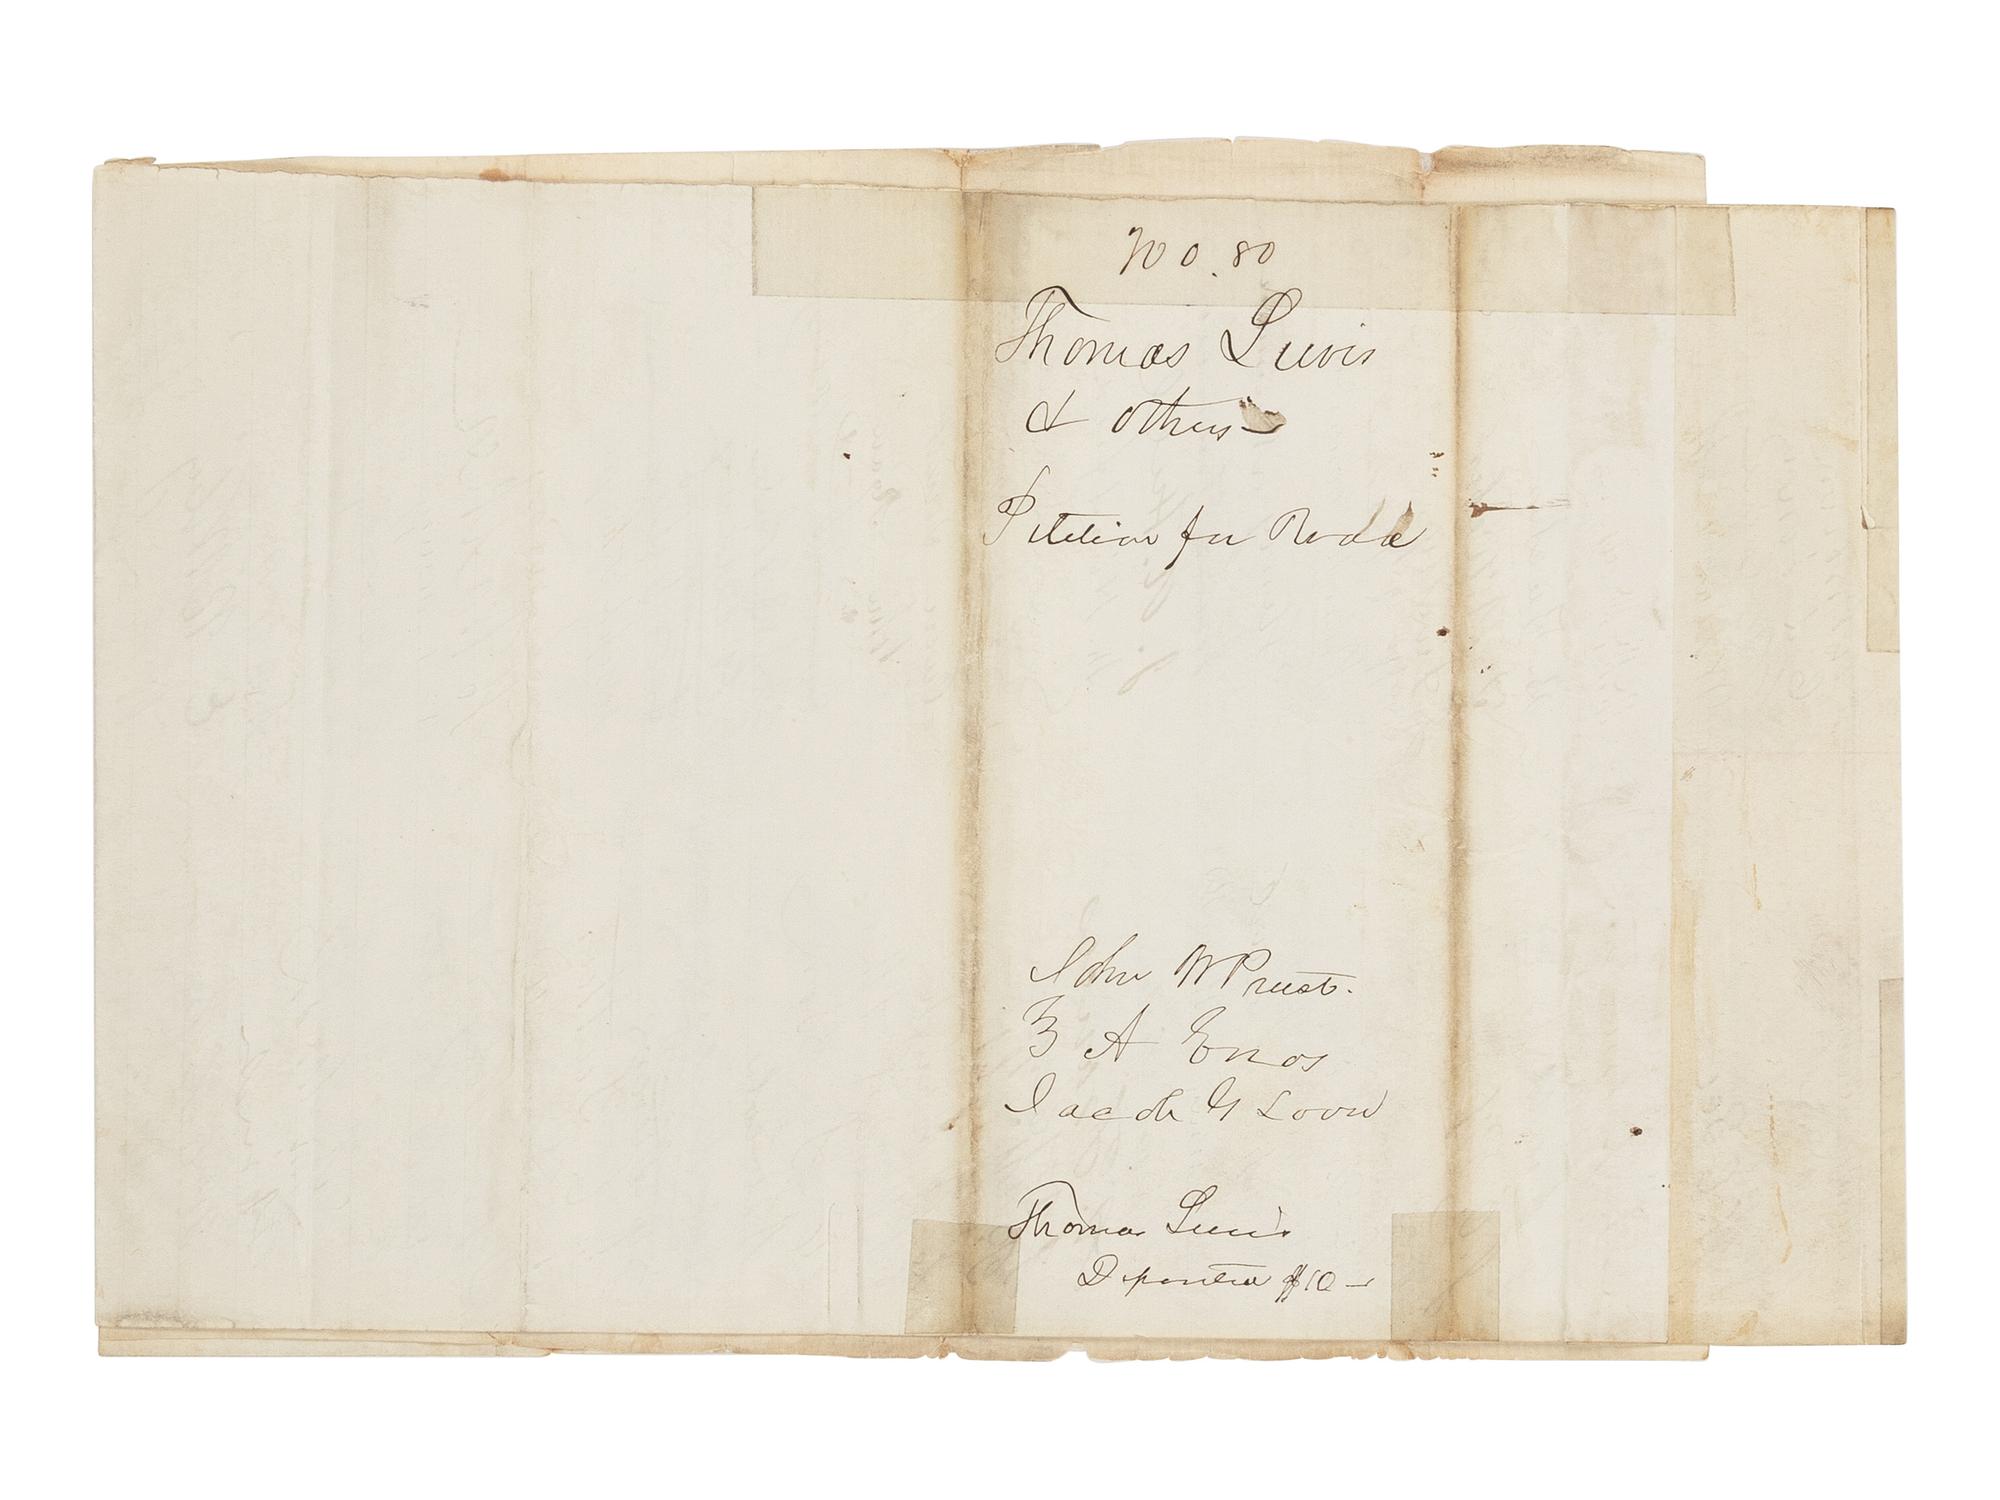 No. 80
Thomas Lewis
& others
Petition for Road
John W Priest.
Z A Enos
Jacob G Loose
Thomas Lewis
Deposited $10 —